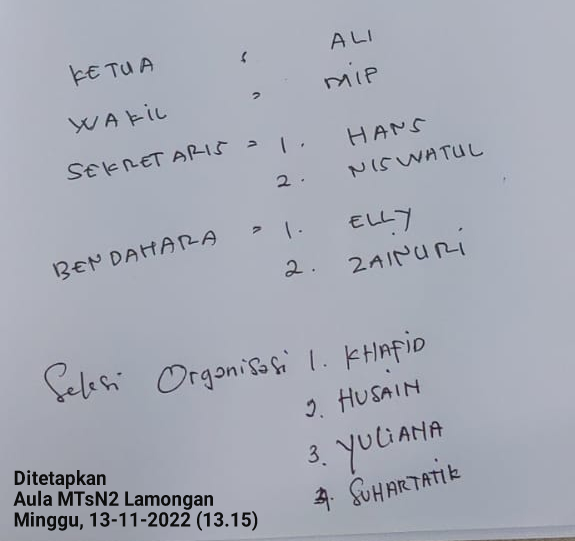 KETUA : ALI
WAKIL : MIP
SEKRETARIS = 1. HANS
2. NISWATUL
BENDAHARA = 1. ELLY
2. ZAINURI
Seksi Organisasi 1. KHAFID
2. HUSAIN
3. YULIANA
4. SUHARTATIK
Ditetapkan
Aula MTsN2 Lamongan
Minggu, 13-11-2022 (13.15)